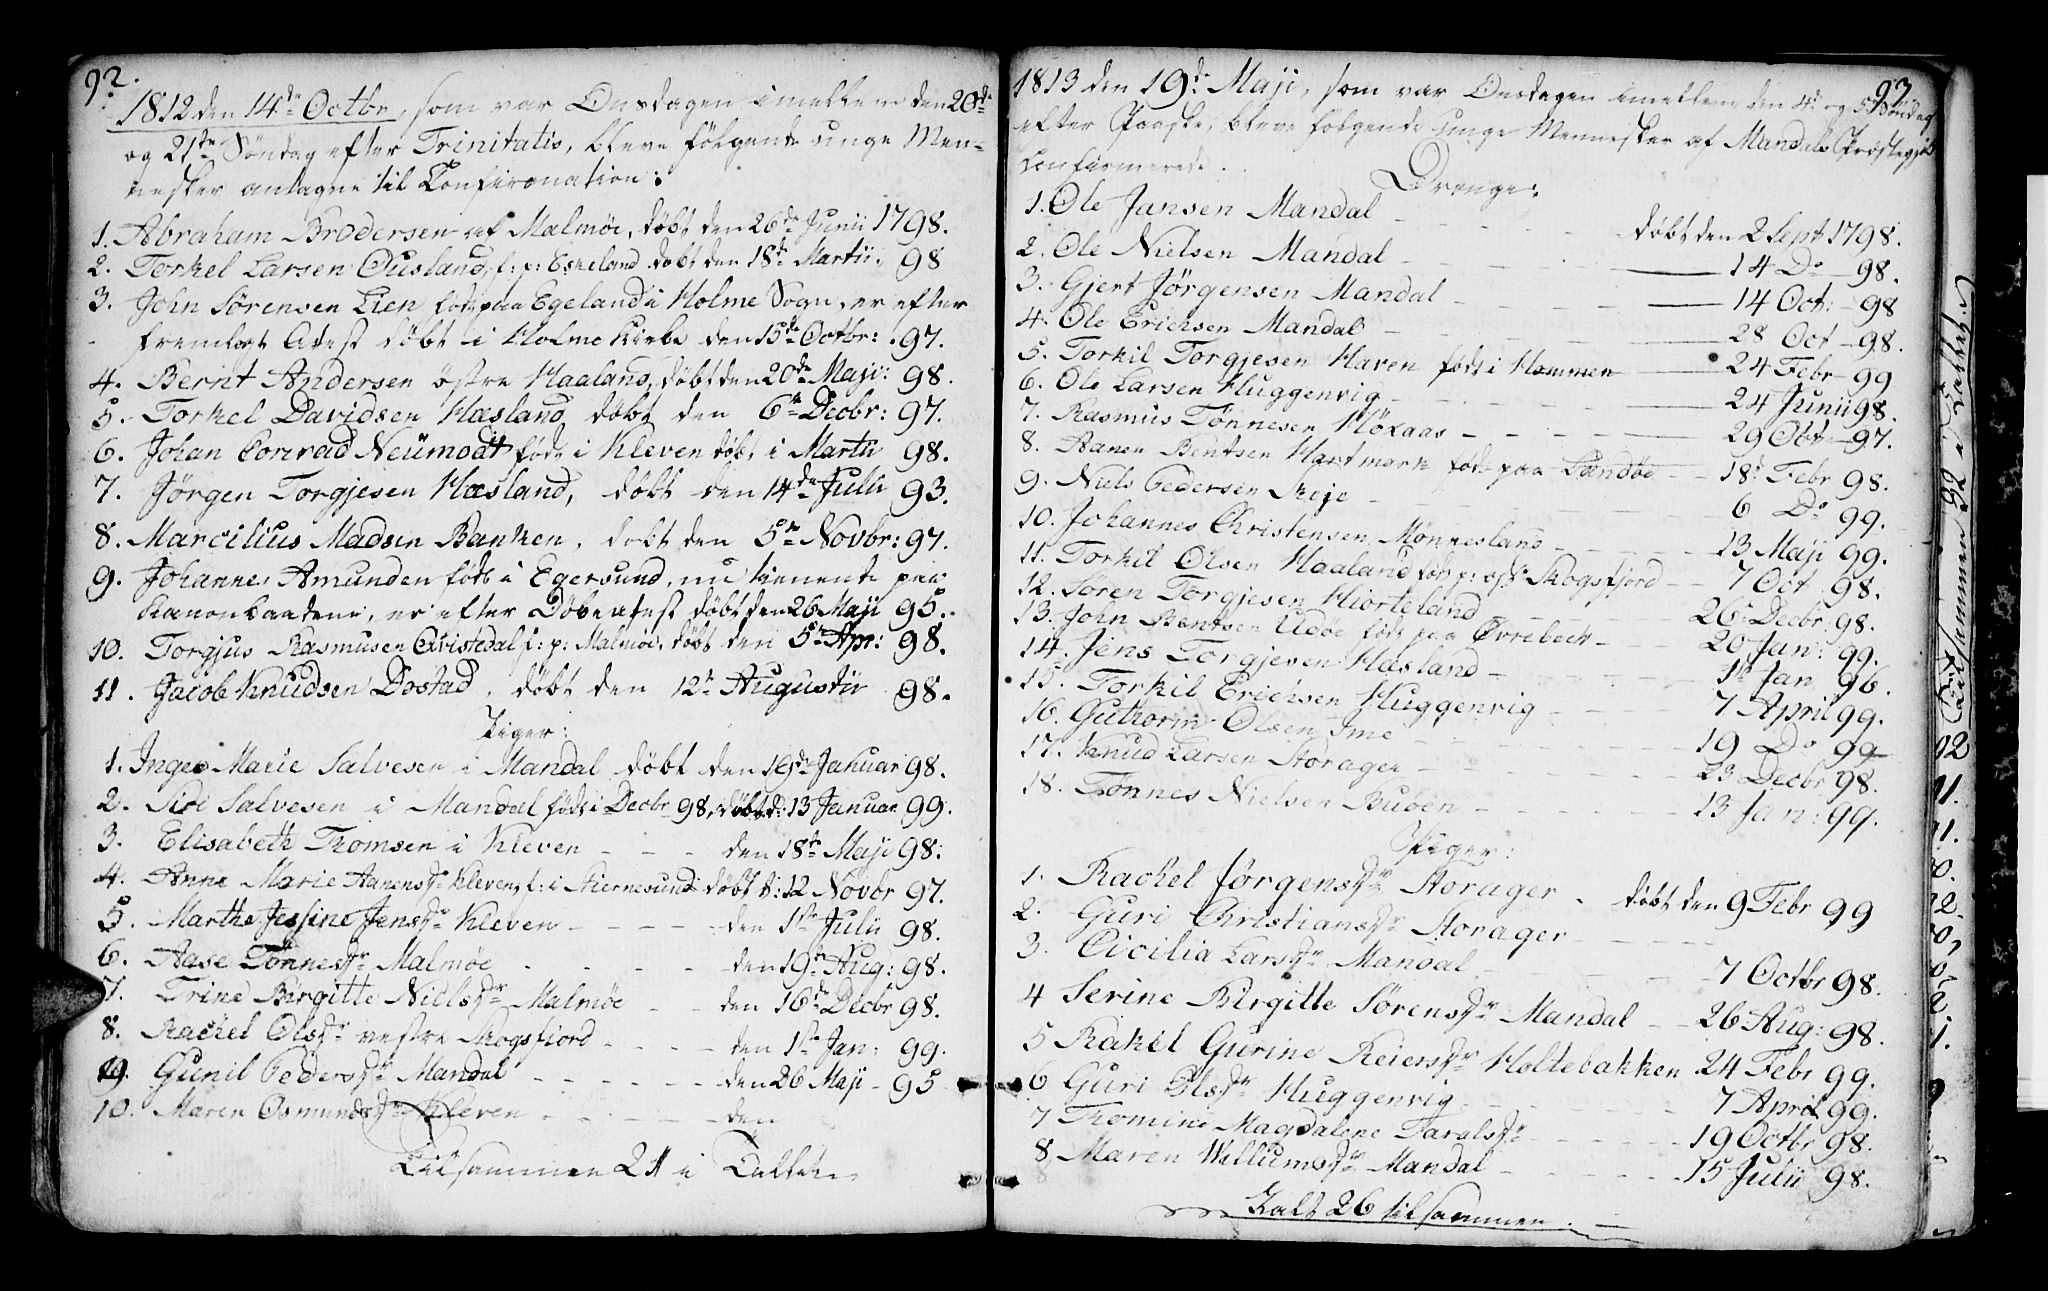 92.
1812 den 14de Octbr, som var Onsdagen imellem den 20de
og 21de Söndag efter Trinitatis, bleve fölgende unge Men-
nesker antagne til Confirmation:
1. Abraham Brodersen af Malmöe, döbt den 26de Junii 1798.
2. Torkel Larsen Ousland, f: p: Eskeland döbt den 18de Martii, 98
3. John Sörensen Lien föd paa Egeland i Holme Sogn, er efter
fremlagt Attest döbt i Holme Kirke den 15de Octbr: 97.
4. Bernt Andersen östre Haaland, döbt den 20de Maji: 98.
5. Torkel Davidsen Hæsland, döbt den 6te Decbr: 97.
6. Johan Conrad Neümodt föd i Kleven döbt i Martii 98.
7. Jörgen Torgjesen Hæsland, döbt den 14de Julii 93.
8. Marcilius Madsen Banken, döbt den 5te Novbr: 97.
9. Johannes Amunden föd i Egersund, nu tienende paa
Kanonbaadene, er efter Döbeattest döbt den 26 Maji 95.
10. Torgjus Rasmusen Qvistedal f: p: Malmöe, döbt den 5te Apr: 98.
11. Jacob Knudsen Dostad, döbt den 12te Augustii 98.
Piger:
1. Inger Marie Salvesen i Mandal döbt den 16de Januar 98.
2. Siri Salvesen i Mandal föd i Decbr 98, döbt d: 13 Januar 99.
3. Elisabeth Thomsen i Kleven den 18de Maji 98.
4. Anne Marie Aanensdr Kleven, f: i Stiernesund döbt d: 12 Novbr 97.
5. Marthe Jessine Jensdr Kleven den 1ste Julii 98.
6. Aase Tönnesdr Malmöe den 19de Aug: 98.
7. Trine Birgitte Nielsdr Malmöe den 16de Decbr 98.
8. Rachel Olsdr vestre Skogsfiord den 1ste Jan: 99.
9. Gunil Pedersdr Mandal den 26 Maji 95
10. Maren Osmundsdr Kleven den
Tilsammen 21 i Tallet
93
1813 den 19de Maji, som var Onsdagen imellem den 4de og 5te Söndag
efter Paaske, bleve fölgende unge Mennesker af Mandals Præstegjeld
Confirmerede.
Drenge:
1. Ole Jansen Mandal döbt den 2 Sept 1798.
2. Ole Nielsen Mandal 14 Do 98.
3. Gjert Jörgensen Mandal 14 Oct: 98
4. Ole Erichsen Mandal 28 Oct 98.
5. Torkil Torgjesen Haven föd i Hommen 24 Febr 99
6. Ole Larsen Huggenvig 24 Junii 98.
7. Rasmus Tönnesen Höxaas 29 Obt 97.
8. Aanen Bentsen Hartmark föd paa Landöe 18de Febr 98.
9. Niels Pedersen Skeje 6 Do 99.
10. Johannes Christensen Mönnesland 13 Maji 99.
11. Torkil Olsen Haaland föd p: Skogsfjord 7 Oct 98.
12. Sören Torgjesen Hiorteland 26 Decbr 98.
13. John Bentsen Udöe föd paa Övrebeck 20 Jan: 99.
14. Jens Torgjesen Hæsland 1ste Jan 96.
15. Torkil Erichsen Huggenvig 7 April 99.
16. Guthorm Olsen Ime 19 Do 99
17. Knud Larsen Storager 23 Decbr 98.
18. Tönnes Nielsen Buböen 13 Jan: 99.
Piger:
1. Rachel Jörgensdr Storager döbt den 9 Febr 99
2. Guri Christiansdr Storager
3. Cicilia Larsdr Mandal 7 Octbr 98.
4 Serine Birgitte Sörensdr Mandal 26 Aug: 98.
5 Rakel Gurine Reiersdr Holtebakken 24 Febr 99.
6 Guri Olsdr Huggenvig 7 April 99.
7 Thomine Magdalene Taralsdr 19 Octbr 98.
8 Maren Wellumsdr Mandal 15 Julii 98.
Talt 26 tilsammen.